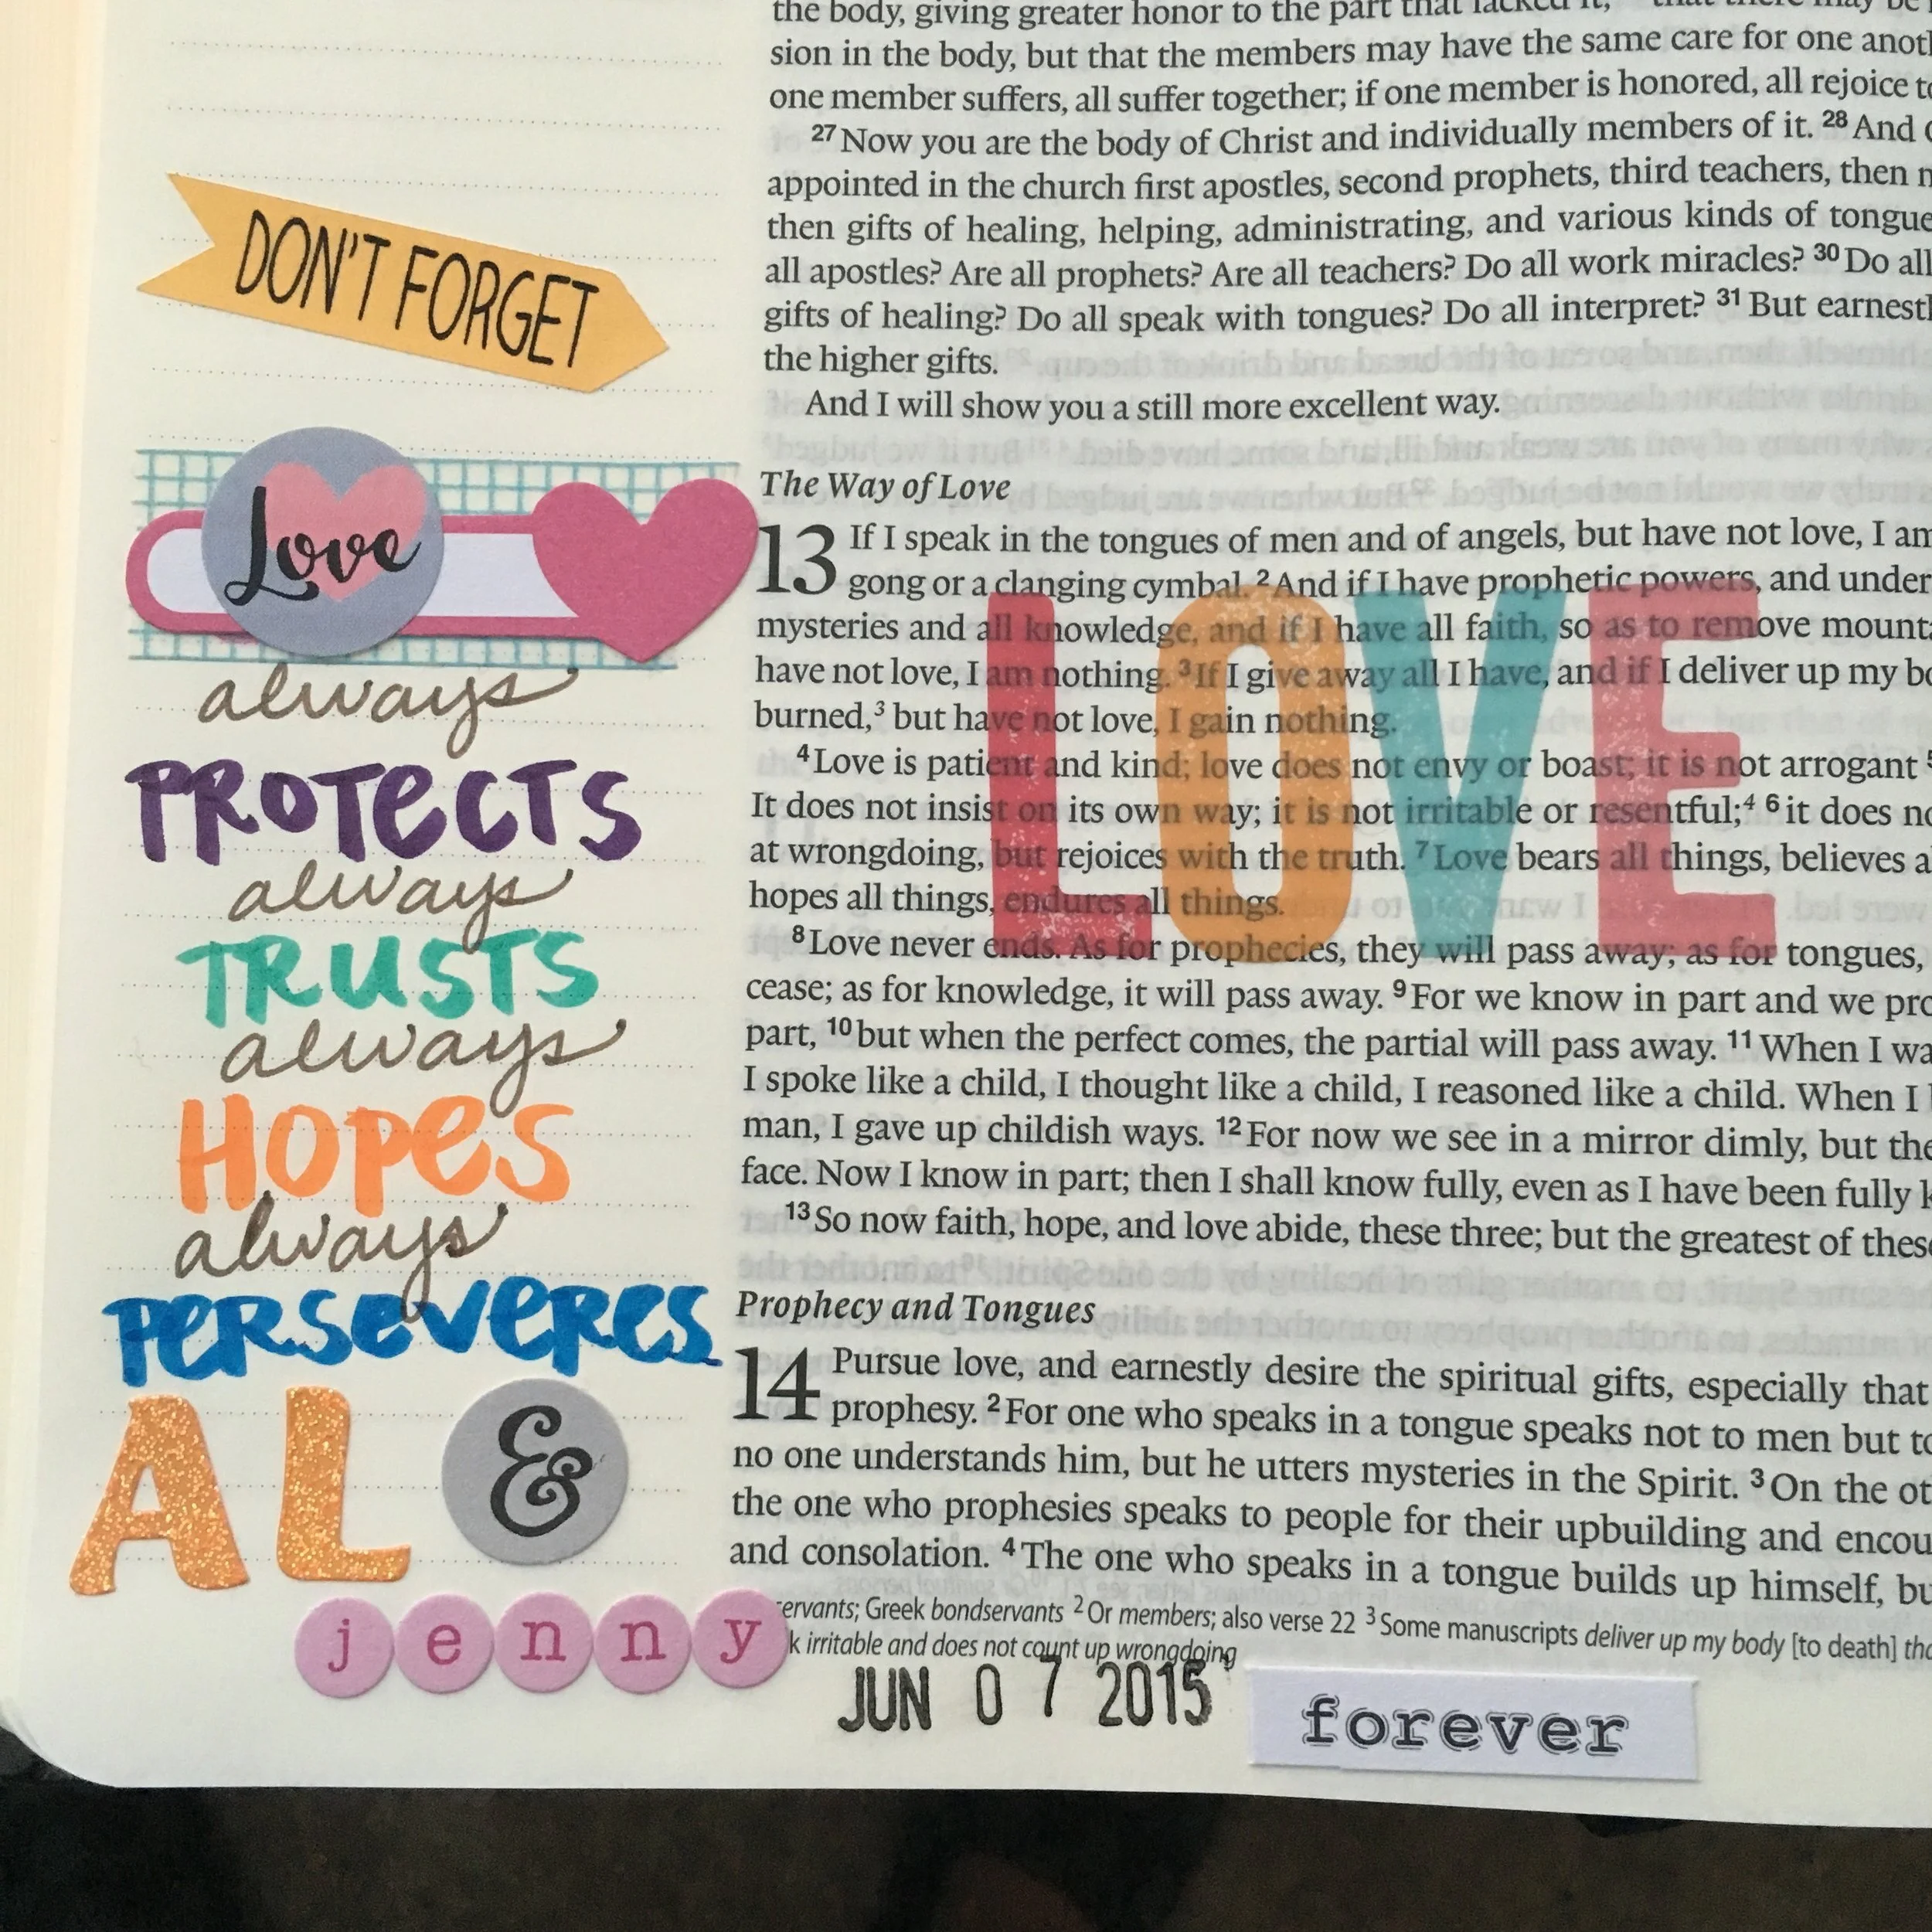 DON'T FORGET
Love
always
PROTECTS
always
TRUSTS
always
HOPES
always
PERSEVERES
AL &
jenny
the body, giving greater honor to the part that lacked it,
sion in the body, but that the members may have the same care for one
one member suffers, all suffer together; if one member is honored, all rejoice
27 Now you are the body of Christ and individually members of it. 28 And
appointed in the church first apostles, second prophets, third teachers, then
then gifts of healing, helping, administrating, and various kinds of
all apostles? Are all prophets? Are all teachers? Do all work miracles? 30 Do all
gifts of healing? Do all speak with tongues? Do all interpret? 31 But
the higher gifts.
And I will show you a still more excellent way.
The Way of Love
13 If I speak in the tongues of men and of angels, but have not love, I am
gong or a clanging cymbal. 2 And if I have prophetic powers, and
mysteries and all knowledge, and if I have all faith, so as to remove
have not love, I am nothing. 3 If I give away all I have, and if I deliver up my
burned,3 but have not love, I gain nothing.
LOVE
4 Love is patient and kind; love does not envy or boast; it is not arrogant
It does not insist on its own way; it is not irritable or resentful;4 6 it does
at wrongdoing, but rejoices with the truth. 7 Love bears all things, believes
hopes all things, endures all things.
8 Love never ends. As for prophecies, they will pass away; as for tongues,
cease; as for knowledge, it will pass away. 9 For we know in part and we
part, 10 but when the perfect comes, the partial will pass away. 11 When I
I spoke like a child, I thought like a child, I reasoned like a child. When I
man, I gave up childish ways. 12 For now we see in a mirror dimly, but
face. Now I know in part; then I shall know fully, even as I have been fully
13 So now faith, hope, and love abide, these three; but the greatest of
Prophecy and Tongues
14 Pursue love, and earnestly desire the spiritual gifts, especially that
prophesy. 2 For one who speaks in a tongue speaks not to men but
no one understands him, but he utters mysteries in the Spirit. 3 On the
the one who prophesies speaks to people for their upbuilding and
and consolation. 4 The one who speaks in a tongue builds up himself,
ervants; Greek bondservants 2 Or members; also verse 22 3 Some manuscripts deliver up my body [to death]
k irritable and does not count up wrongdoing
JUN 07 2015
forever